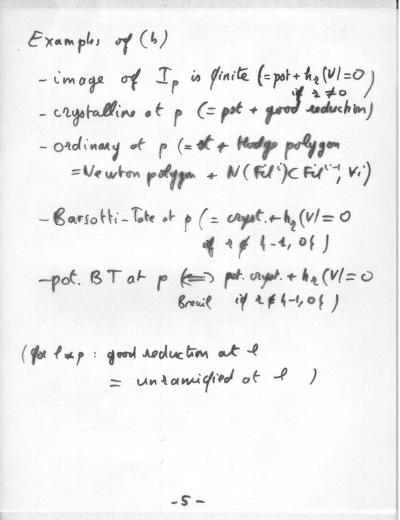 Examples of (b)
- image of Ip is finite (= pst + h_r(V) = 0
if r ≠ 0)
- crystalline at p (= pst + good reduction)
- ordinary at p (= st + Hodge polygon
= Newton polygon + N(Fil^i) ⊂ Fil^{i-1}, ∀i)
- Barsotti-Tate at p (= cryst. + h_r(V) = 0
if r ∉ {-1, 0})
- pot. BT at p ⟺ pot. cryst. + h_r(V) = 0
Breuil if r ∉ {-1, 0})
(for l ≠ p : good reduction at l
= unramified at l )
- 5 -